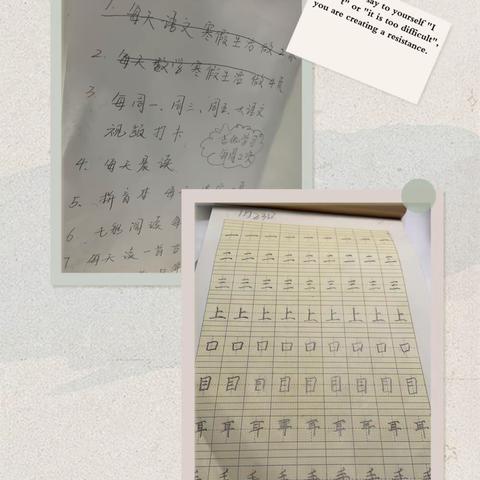 1. 每天语文寒假生活做2
2. 每天数学寒假生活做4页
3. 每周一、周三、周五、大语文
视频打卡
4. 每天晨读
5. 拼音本 每
6 七彩阅读 每
7 每天读一首古
ay to yourself "I
" or "it is too difficult",
you are creating a resistance.
1月23日
一 一 一 一 一 一 一 一
二 二 二 二 二 二 二 二
三 三 三 三 三 三 三 三
上 上 上 上 上 上 上 上
口 口 口 口 口 口 口 口 口
目 目 目 目 目 目 目 目 目
耳 耳 耳 耳 耳 耳 耳 耳 耳
手 手 手 手 手 手 手 手 手